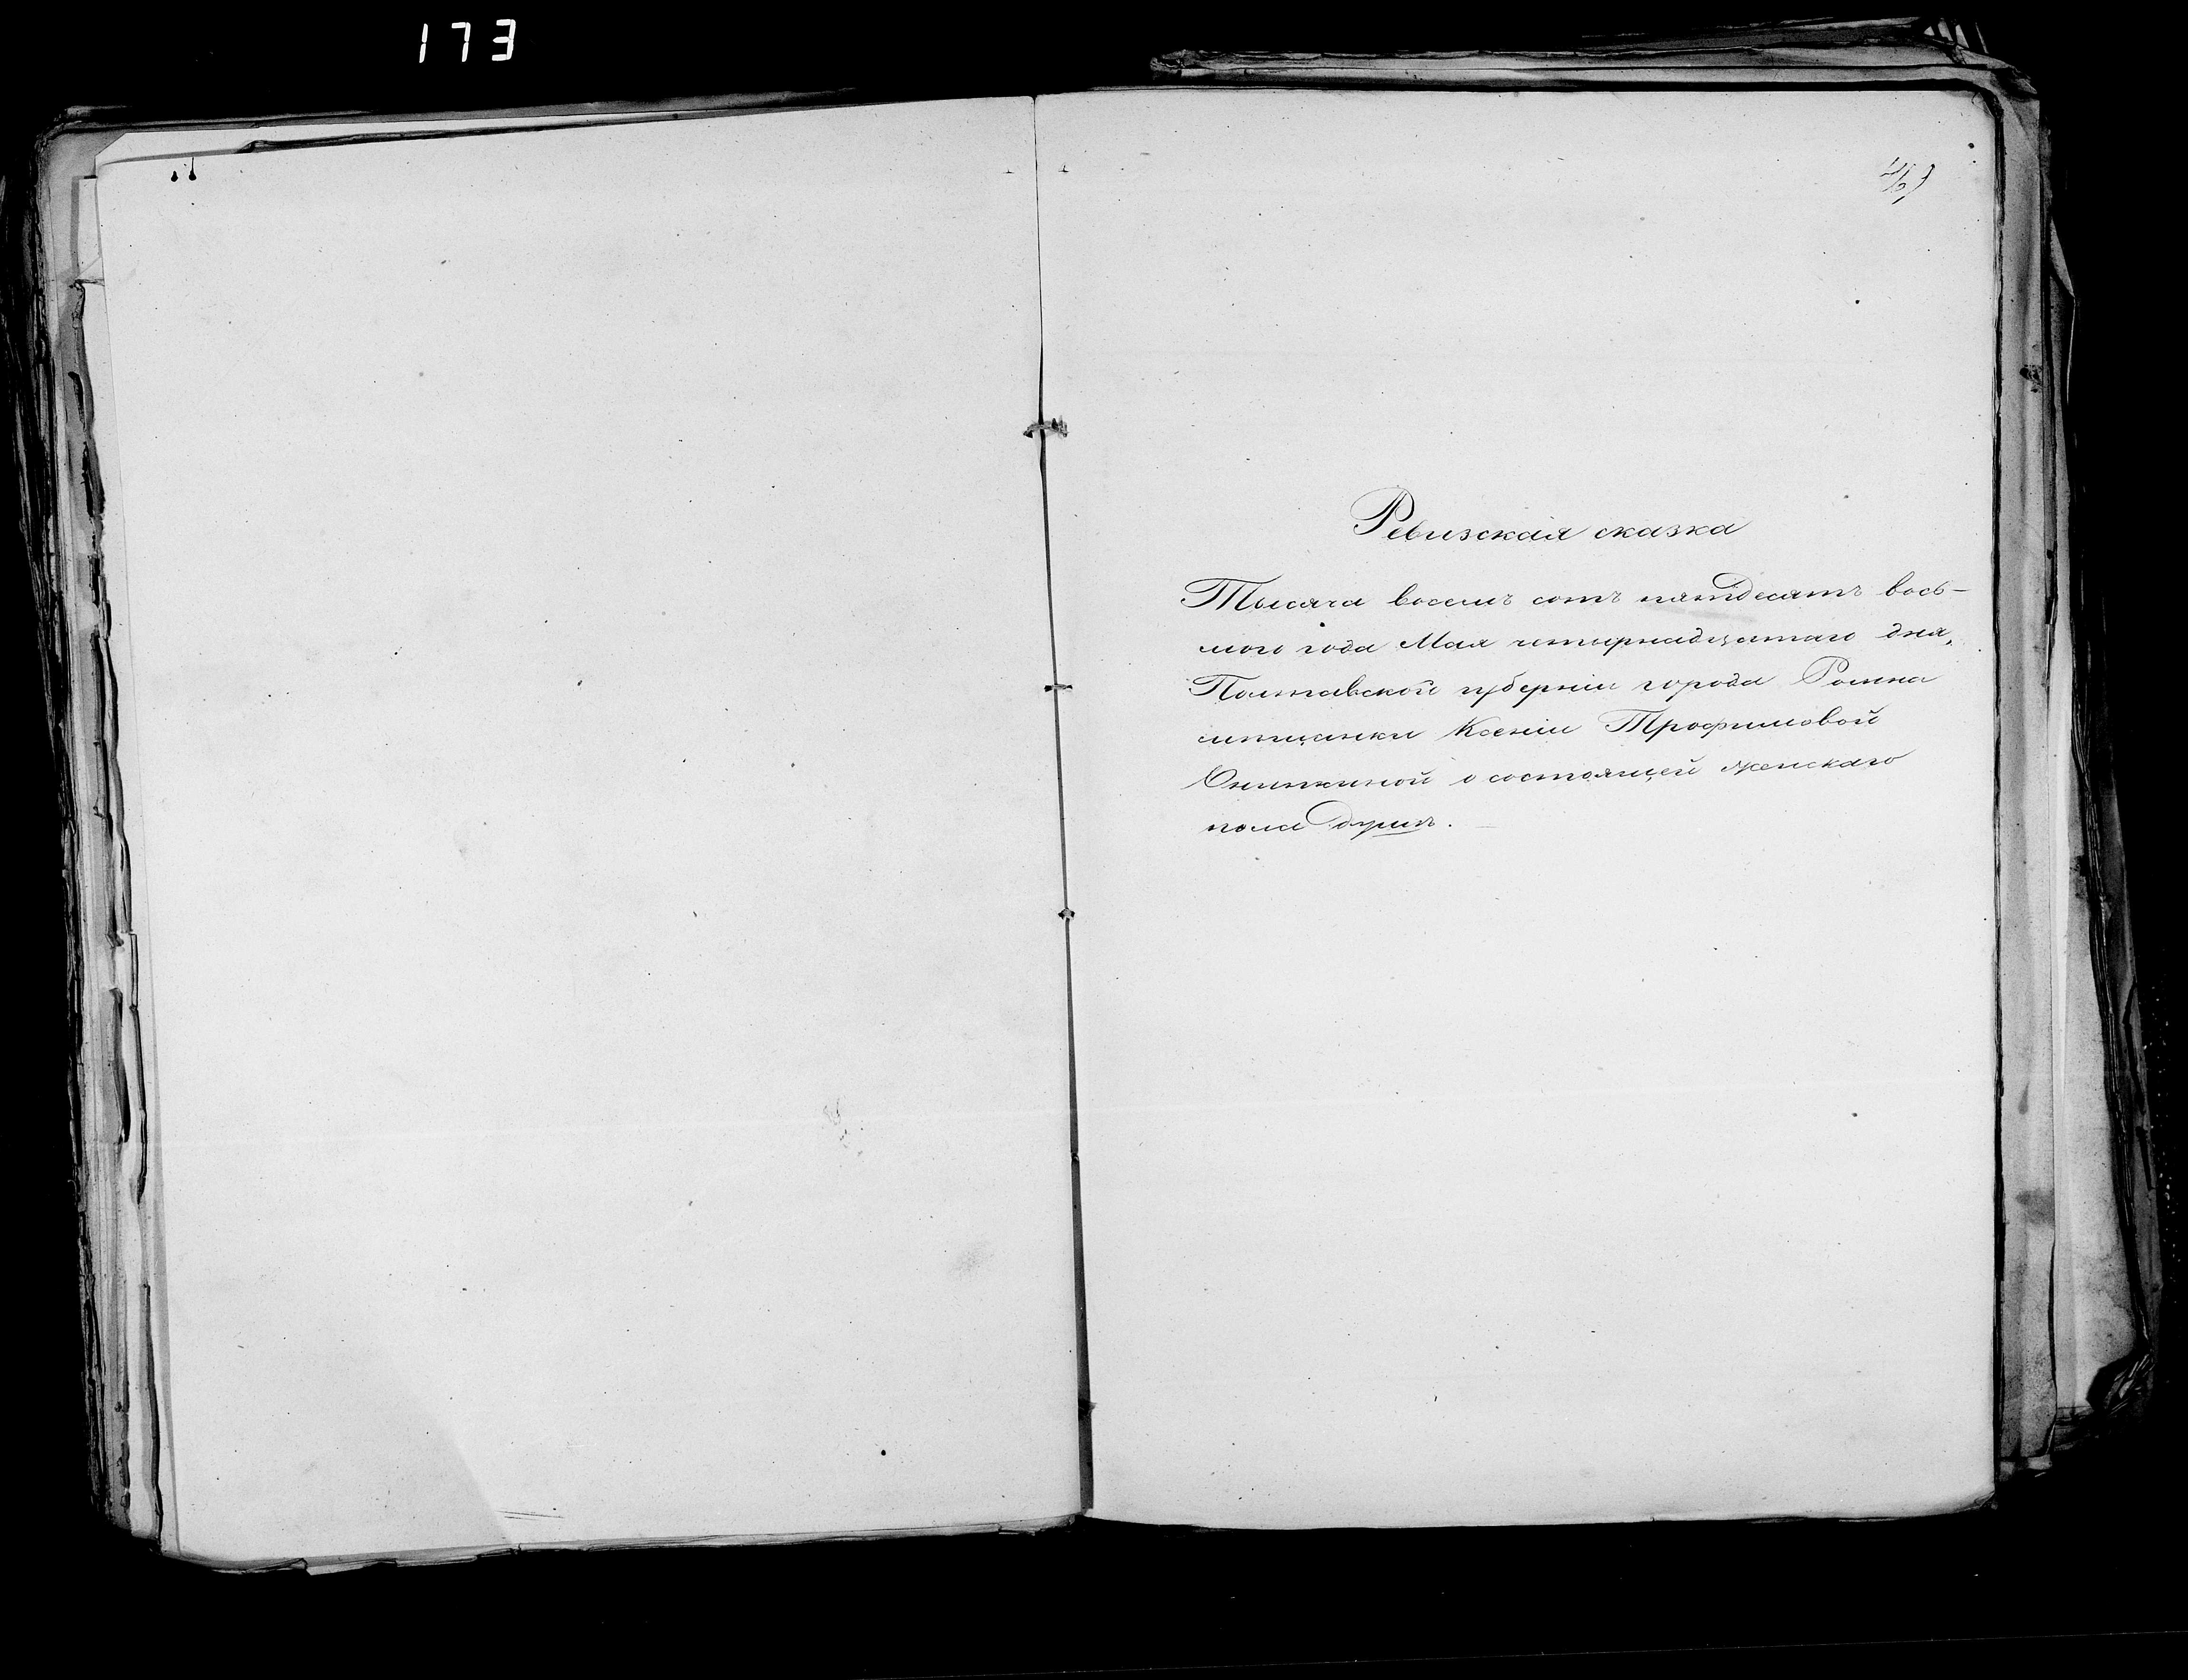 173
Ревизская сказка
Тысяча восемъ сотъ пятдесятъ вось-
мого года Мая четырнадцатаго дня,
Полтавской губерніи города Ромна
мѣщанки Ксеніи Трофимовой
о состоящей женскаго
пола душѣ.